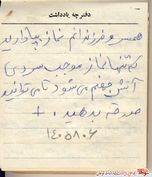 دفترچه یادداشت
همسر و فرزندانم نماز بپا دارید
که تنها نماز موجب سردی
آتش جهنم می شود تا می توانید
صدقه بدهید
۱۴۰۵۸۰۶